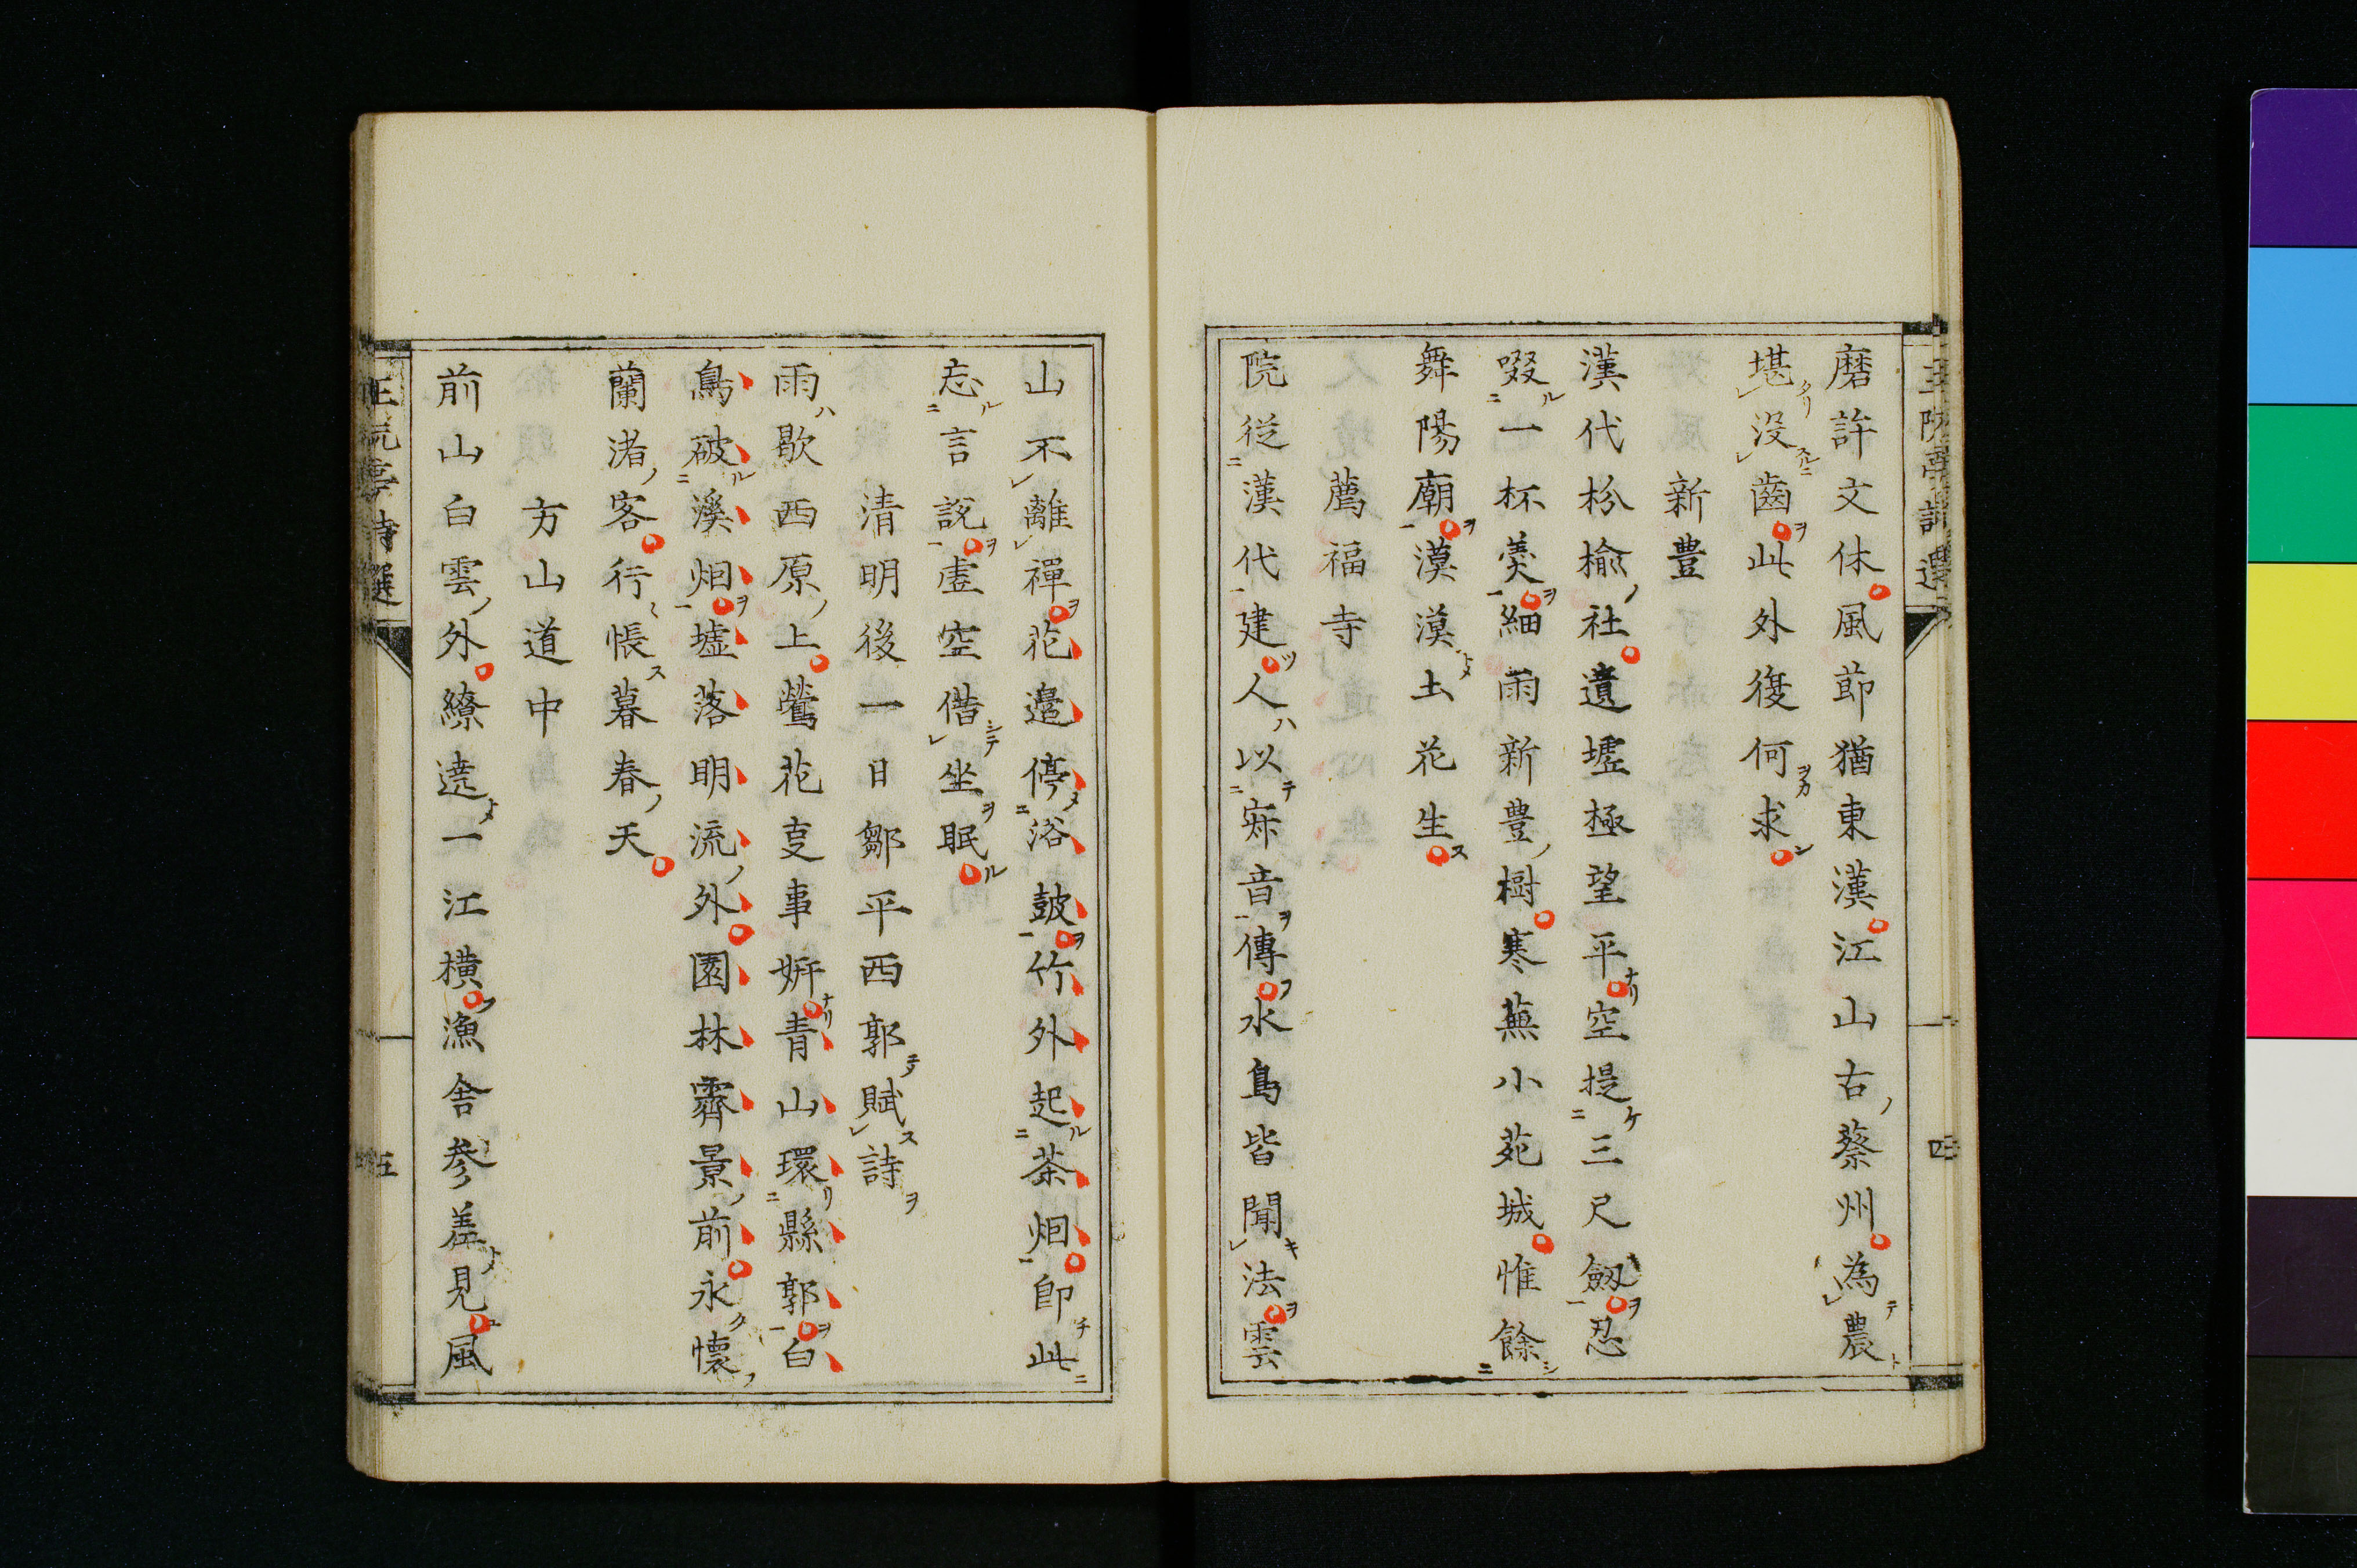 磨許文休風節猶東漢江山古蔡州為農
堪没齒此外復何求
新豊
漢代枌楡社遺墟極望平空提三尺劔忍
啜一杯羮細雨新豊樹寒蕪小苑城惟餘
舞陽廟漠漠土花生
薦福寺
院従漢代建人以寂音傳水鳥皆聞法雲
四
山不離禪花邉停浴鼓竹外起茶烟卽此
忘言說虚空借坐眠
清明後一日鄒平西郭賦詩
雨歇西原上鶯花叓事妍青山環縣郭白
鳥破溪烟墟落明流外園林霽景前永懷
蘭渚客行悵暮春天
方山道中
前山白雲外繚遶一江横漁舎參差見風
五